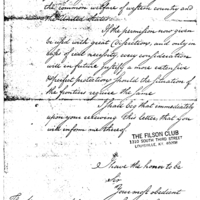 the common welfare of western country and
the United States.
If the permission now given
be used with great Caution, and only in
case of real necessity, every confidence
will in future justify a more extensive
perfect protection should the situation of
the frontiers require the same
I shall beg that immediately
upon your receiving this letter that you
will inform me thereof.
THE FILSON CLUB
1310 SOUTH THIRD STREET
LOUISVILLE, KY. 40208
I have the honor to be
Sir
Your most obedient